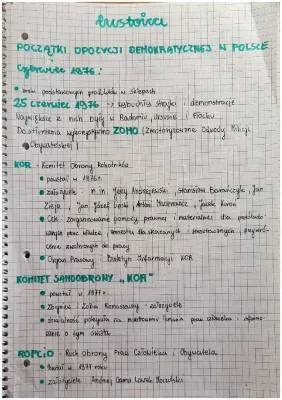 POCZĄTKI OPOZYCJI DEMOKRATYCZNEJ W POLSCE
Czerwiec 1976:
• brak podstawowych produktów w sklepach
25 czerwiec 1976 → wybuchły strajki i demonstracje
Największe z nich były w Radomiu, Ursusie i Płocku
Do stłumienia wykorzystano ZOMO (Zmotoryzowane Odwody Milicji
Obywatelskiej)
KOR - Komitet Obrony Robotników
• powstał w 1976 r.
• założyciele - m.in. Jerzy Andrzejewski, Stanisław Barańczyk, Jan
Zieja, Jan Józef Lipski, Antoni Macierewicz, Jacek Kuroń
• Cel: zorganizowanie pomocy prawnej i materialnej dla
przez władze, dla skazanych i aresztowanych,
zwolnionych do pracy
• Organ Prasowy: Biuletyn Informacyjny KOR
KOMITET SAMOOBRONY „KOR”
• powstał w 1977 r.
• Zbigniew i Zofia Romaszewscy - założyciele
• działalność polegała na łamania praw człowieka i
o tym świata
ROPCiO - Ruch Obrony Praw Człowieka i Obywatela
• Powstał w 1977 roku
• założyciele Andrzej Czuma Leszek Moczulski